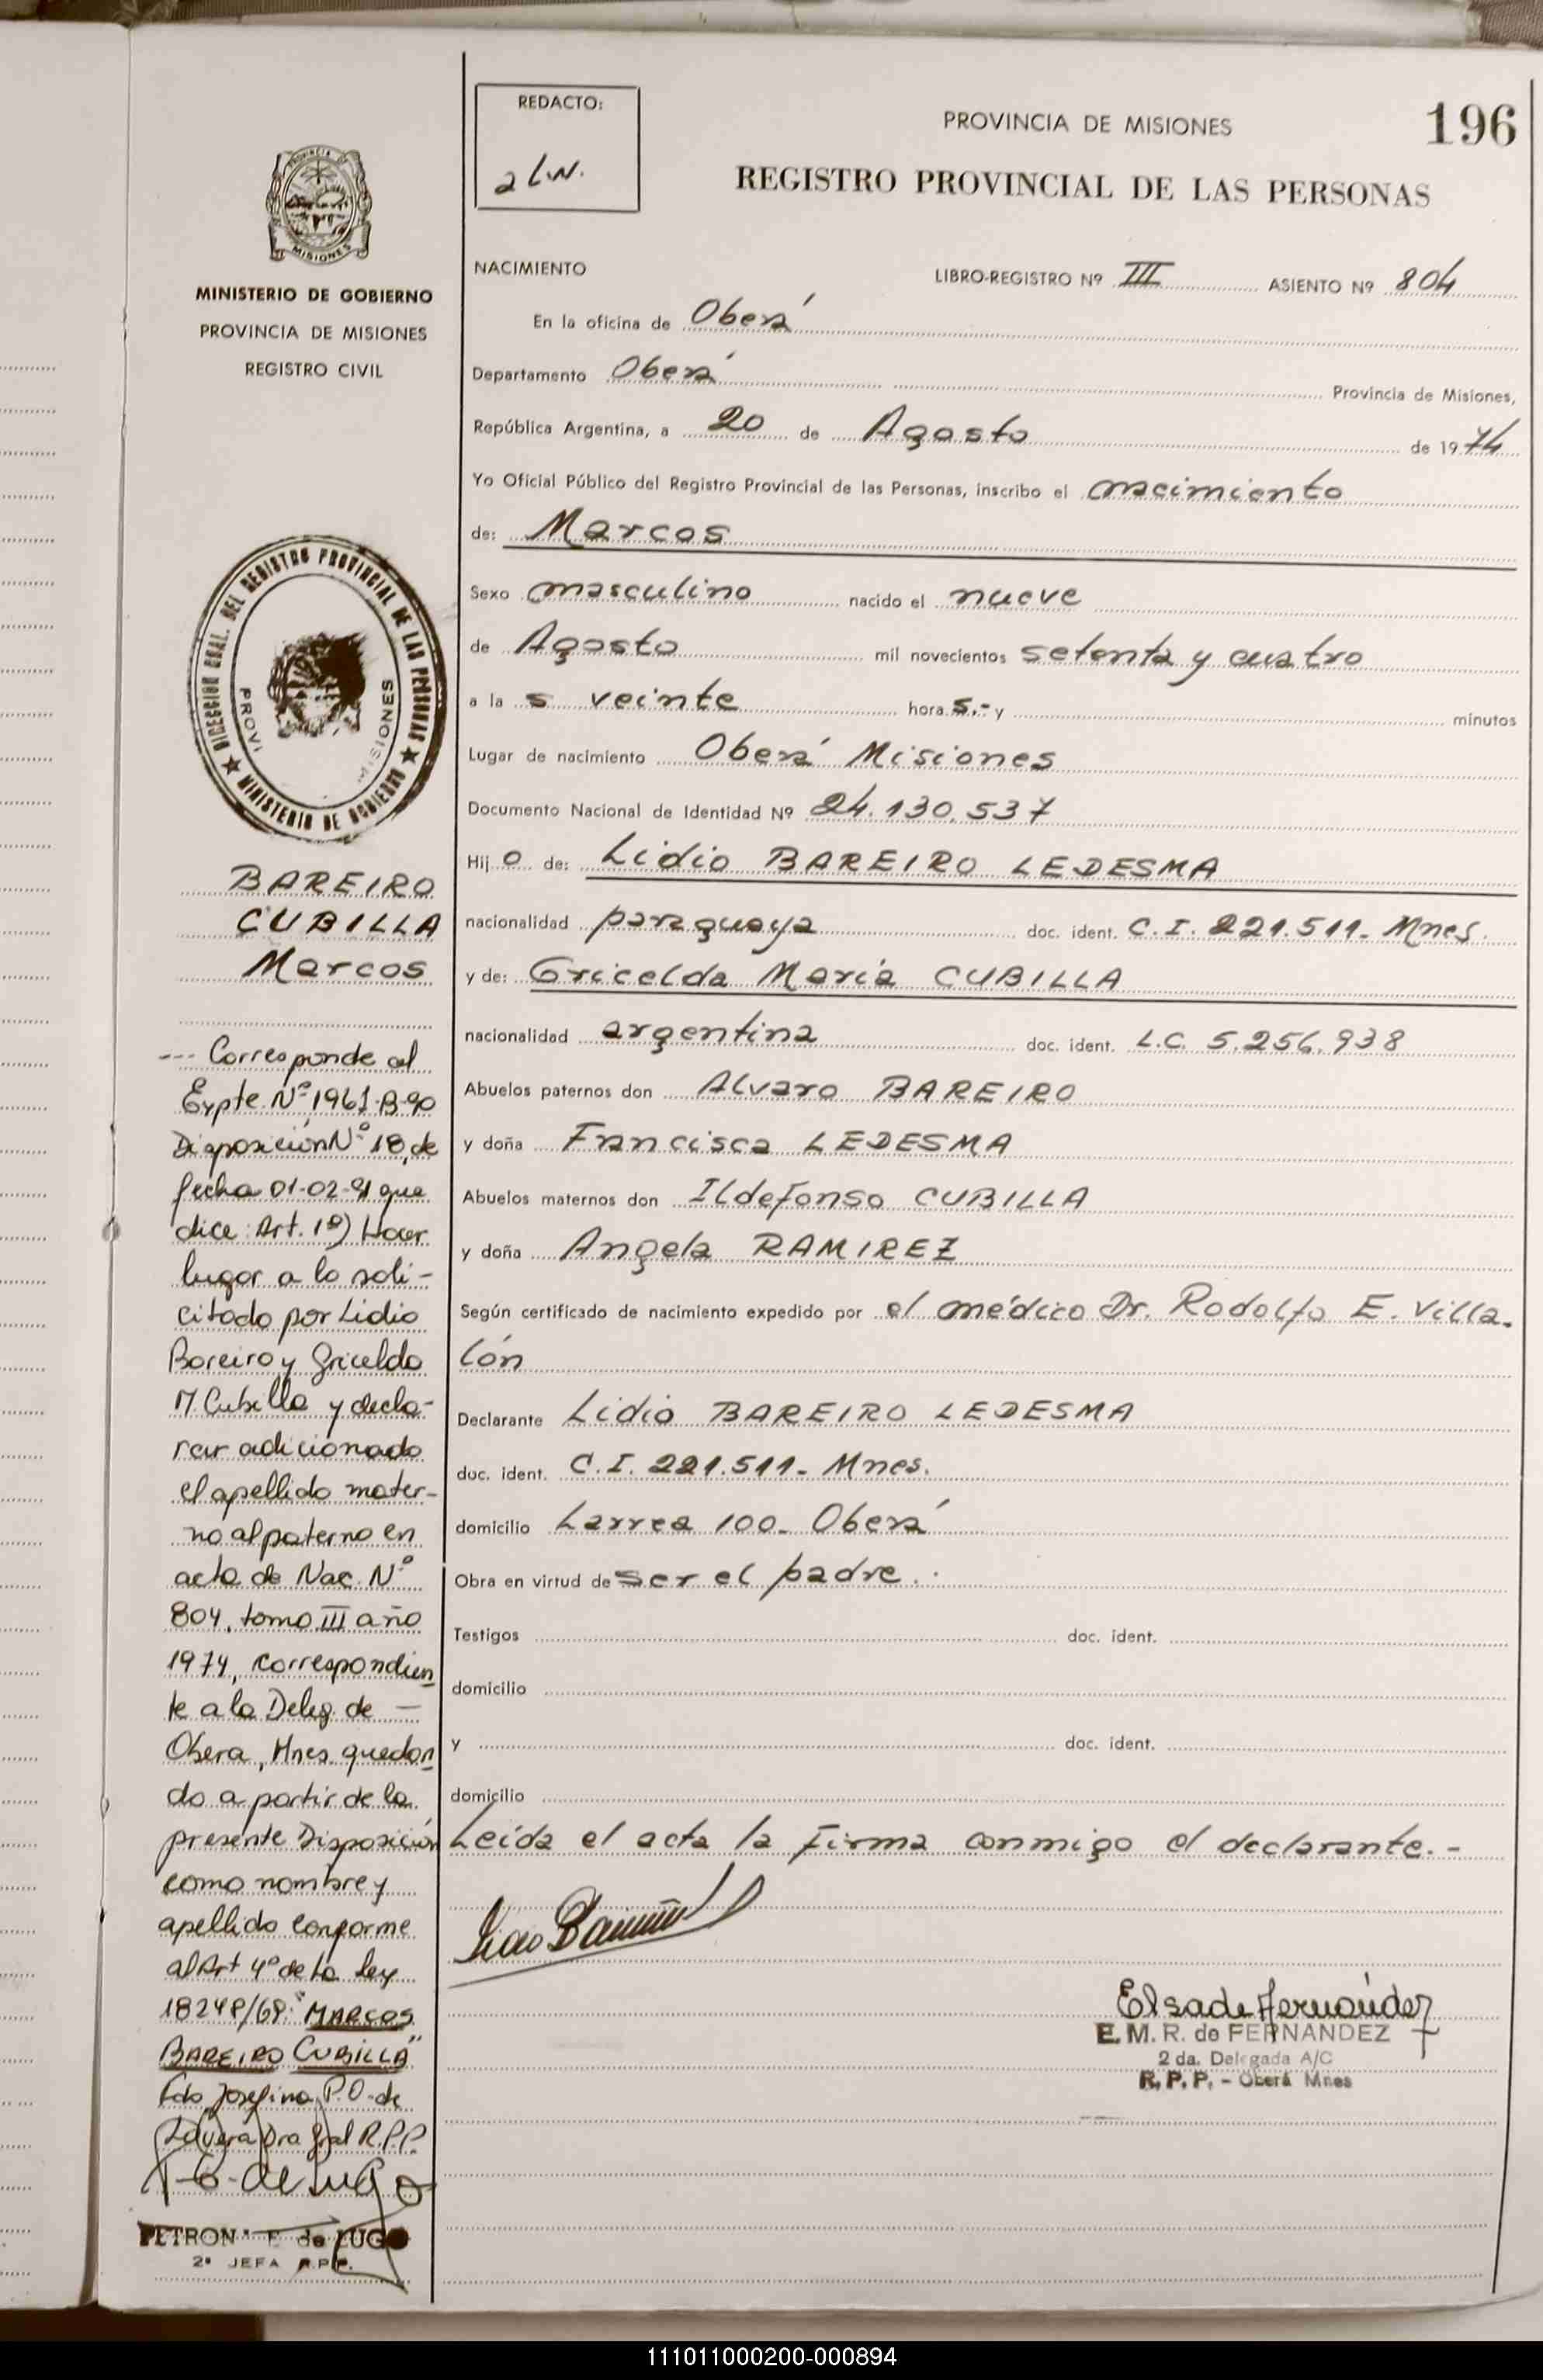 REDACTO:
PROVINCIA DE MISIONES
196
REGISTRO PROVINCIAL DE LAS PERSONAS
MISIONES
MINISTERIO DE GOBIERNO
PROVINCIA DE MISIONES
REGISTRO CIVIL
NACIMIENTO LIBRO-REGISTRO Nº III ASIENTO Nº 804
En la oficina de Oberá
Departamento Oberá Provincia de Misiones,
República Argentina, a 20 de Agosto de 1974
Yo Oficial Público del Registro Provincial de las Personas, inscribo el nacimiento
de: Marcos
Sexo masculino nacido el nueve
de Agosto mil novecientos setenta y cuatro
a la s veinte hora s.- y minutos
Lugar de nacimiento Oberá Misiones
Documento Nacional de Identidad Nº 24.130.537
Hij o de: Lidio BAREIRO LEDESMA
nacionalidad paraguaya doc. ident. C.I. 221.511.- Mnes.
y de: Gricelda María CUBILLA
nacionalidad argentina doc. ident. L.C. 5.256.938
Abuelos paternos don Alvaro BAREIRO
y doña Francisca LEDESMA
Abuelos maternos don Ildefonso CUBILLA
y doña Angela RAMIREZ
Según certificado de nacimiento expedido por el médico Dr. Rodolfo E. Villa-
lón
Declarante Lidio BAREIRO LEDESMA
doc. ident. C.I. 221.511.- Mnes.
domicilio Larrea 100.- Oberá
Obra en virtud de ser el padre.
Testigos doc. ident.
domicilio
y doc. ident.
domicilio
Leída el acta la firma conmigo el declarante.-
Elsa de Fernández
E. M. R. de FERNANDEZ
2 da. Delegada A/C
R. P. P. - Oberá Mnes
DIRECCION GRAL. DEL REGISTRO PROVINCIAL DE LAS PERSONAS
MINISTERIO DE GOBIERNO
PROVI
MISIONES
BAREIRO
CUBILLA
Marcos
--- Corresponde al
Expte. Nº 1961-B-90
Disposición Nº 18, de
fecha 01-02-91 que
dice: Art. 1º) Hacer
lugar a lo soli-
citado por Lidio
Bareiro y Gricelda
M. Cubilla y decla-
rar adicionado
el apellido mater-
no al paterno en
acta de Nac. Nº
804, tomo III año
1974, correspondien
te a la Deleg. de -
Obera, Mnes. quedan
do a partir de la
presente Disposición
como nombre y
apellido conforme
al Art 4º de la Ley
18248/69: "MARCOS
BAREIRO CUBILLA"
Fdo. Josefina P.O. de
Dra Gral R.P.P.
de LUGO
2ª JEFA R.P.P.
111011000200-000894